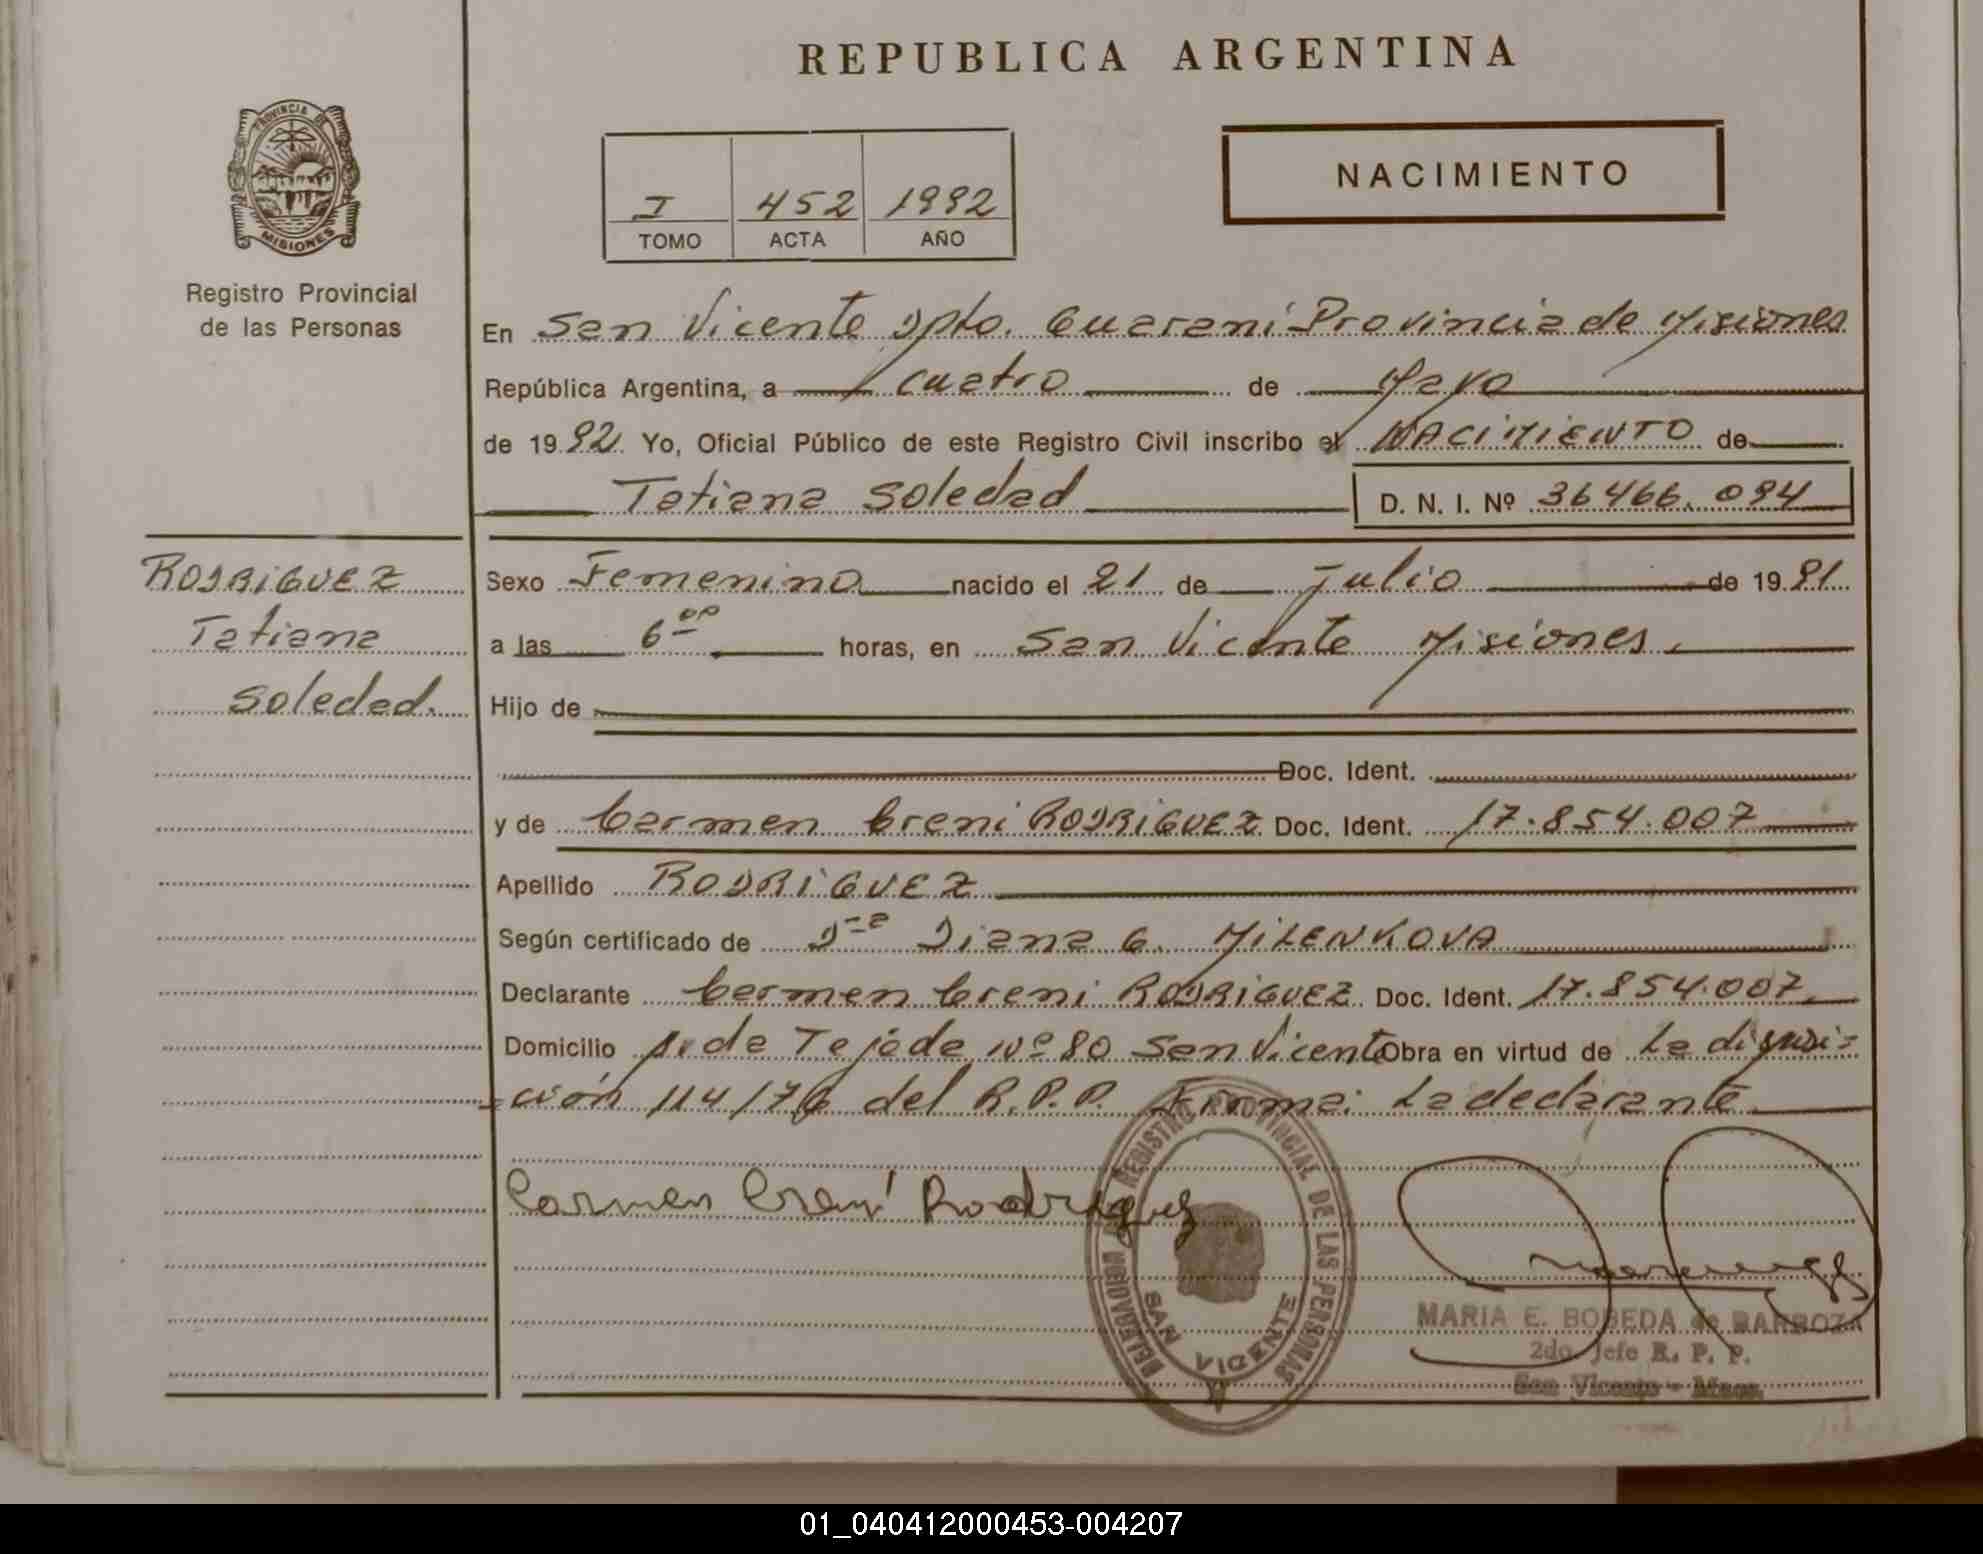 REPUBLICA ARGENTINA
PROVINCIA DE
MISIONES
Registro Provincial
de las Personas
I 452 1992
TOMO ACTA AÑO
NACIMIENTO
En San Vicente Dpto. Guaraní Provincia de Misiones
República Argentina, a cuatro de Mayo
de 1992. Yo, Oficial Público de este Registro Civil inscribo el NACIMIENTO de
Tatiana Soledad D. N. I. Nº 36466.094
RODRIGUEZ
Tatiana
Soledad.
Sexo Femenino nacido el 21 de Julio de 1991
a las 6 00 horas, en San Vicente Misiones.
Hijo de
Doc. Ident.
y de Carmen Creni RODRIGUEZ Doc. Ident. 17.854.007
Apellido RODRIGUEZ
Según certificado de Dra Diana G. MILENKOVA
Declarante Carmen Creni RODRIGUEZ Doc. Ident. 17.854.007
Domicilio de Tejada Nº 80 San Vicente Obra en virtud de La disposi-
-ción 114/76 del R.P.P. Firma: La declarante
Carmen Creni Rodriguez
REGISTRO PROVINCIAL DE LAS PERSONAS
SAN VICENTE
MARIA E. BOBEDA de BARBOZA
2do. Jefe R. P. P.
San Vicente - Mnes.
01_040412000453-004207